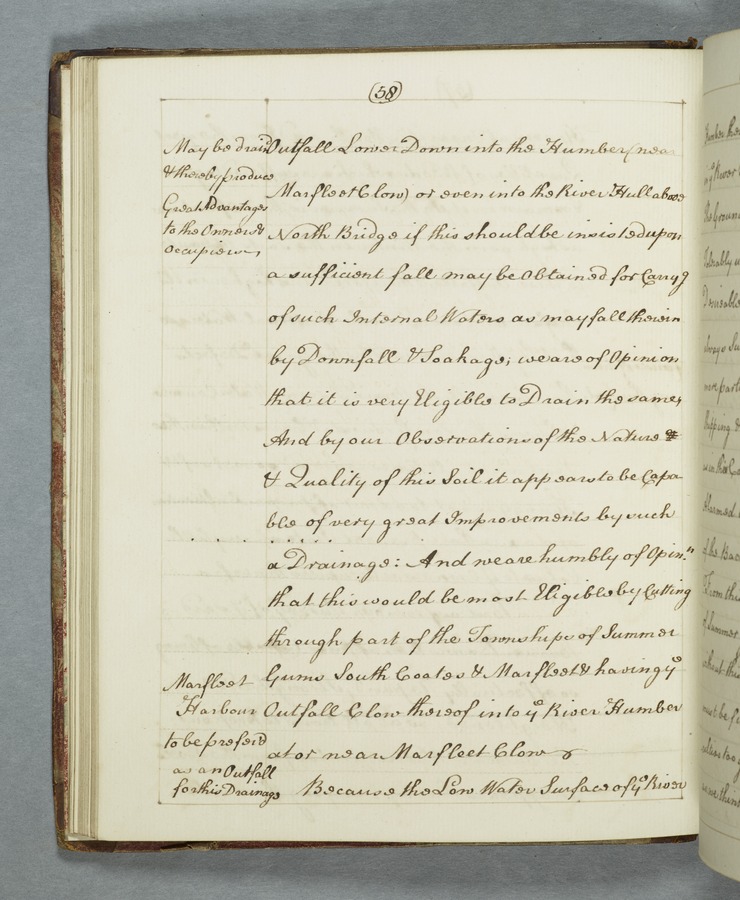 (58)
May be drain'd
& thereby produce
Great Advantages
to the Owners &
Occupiers,
Outfall Lower Down into the Humber (near
Marfleet Clow) or even into the River Hull above
North Bridge if this should be insisted upon
a sufficient fall may be Obtained for Carryg
of such Internal Waters as may fall therein
by Downfall & Soakage; we are of Opinion
that it is very Eligible to Drain the same,
And by our Observations of the Nature
& Quality of this Soil it appears to be Capa
ble of very great Improvements by such
a Drainage: And we are humbly of Opin:n
that this would be most Eligible by Cutting
through part of the Townships of Summer
Gums South Coates & Marfleet & having ye
Outfall Clow thereof into ye River Humber
at or near Marfleet Clow
Marfleet
Harbour
to be prefer'd
as an Outfall
for this Drainage
Because the Low Water Surface of ye River